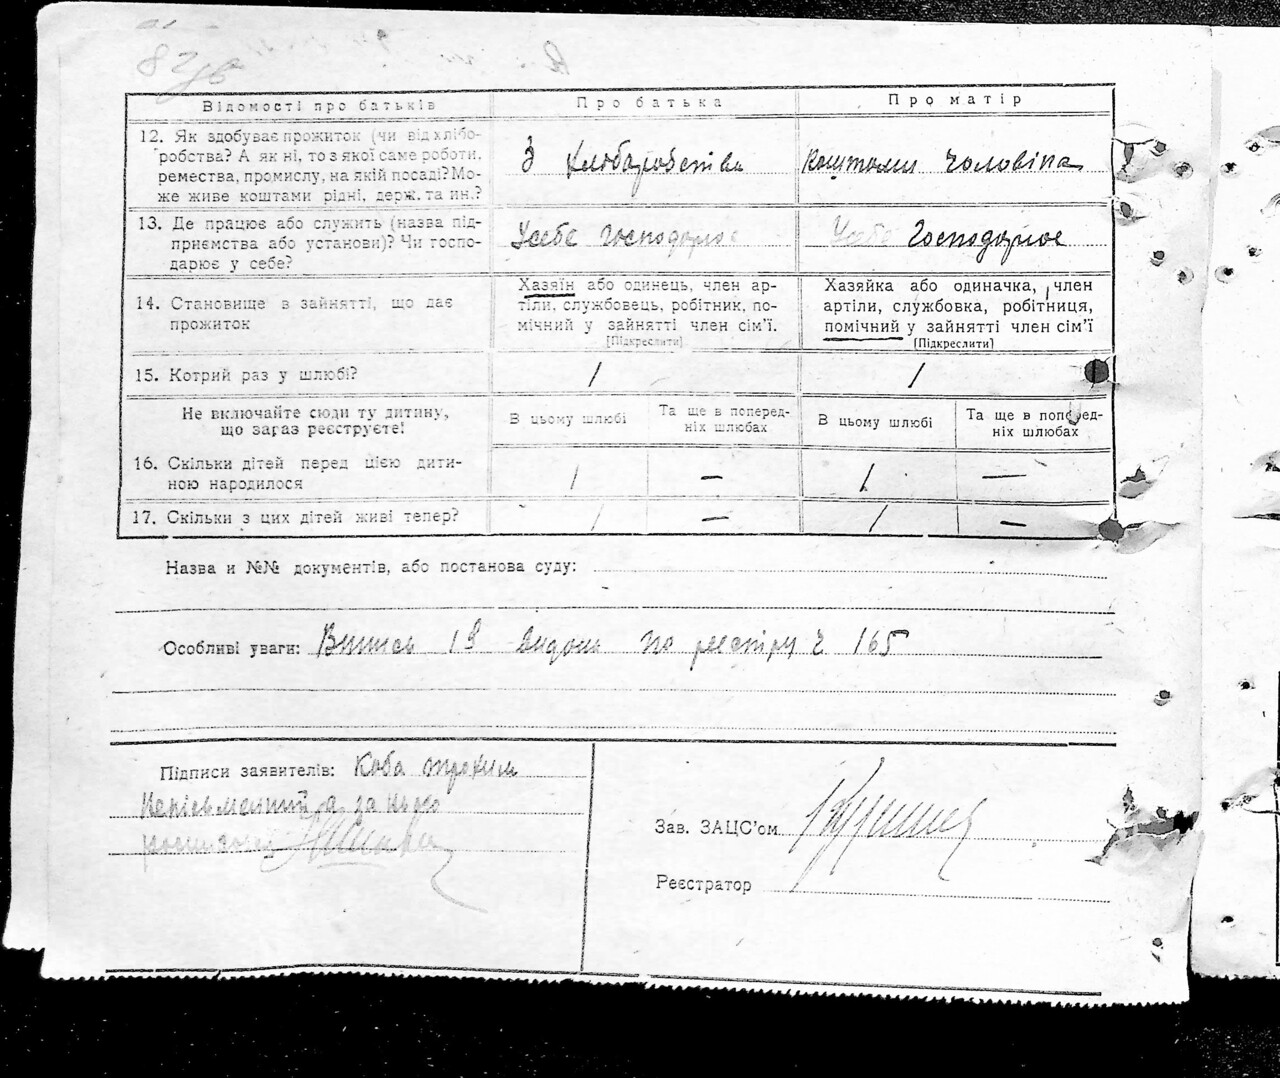 82зв
Відомості про батьків Про батька Про матір
12. Як здобуває прожиток (чи від хлібо-
робства? А як ні, то з якої саме роботи,
ремества, промислу, на якій посаді? Мо-
же живе коштами рідні, держ. та ин.?
З хліборобства
коштами чоловіка
13. Де працює або служить (назва під-
приємства або установи)? Чи госпо-
дарює у себе?
Усебе господарює
Усебе Господарює
14. Становище в зайнятті, що дає
прожиток
Хазяїн або одинець, член ар-
тіли, службовець, робітник, по-
мічний у зайнятті член сім'ї.
[Підкреслити]
Хазяйка або одиначка, член
артіли, службовка, робітниця,
помічний у зайнятті член сім'ї
[Підкреслити]
15. Котрий раз у шлюбі? 1 1
Не включайте сюди ту дитину,
що зараз реєструєте!
В цьому шлюбі
Та ще в поперед-
ніх шлюбах
В цьому шлюбі
Та ще в поперед-
ніх шлюбах
16. Скільки дітей перед цією дити-
ною народилося
1 — 1 —
17. Скільки з цих дітей живі тепер? 1 — 1 —
Назва и №№ документів, або постанова суду:
Особливі уваги: по реєстру ч 165
Підписи заявителів: Коба Трохим
а за нього
Зав. ЗАЦС'ом
Реєстратор